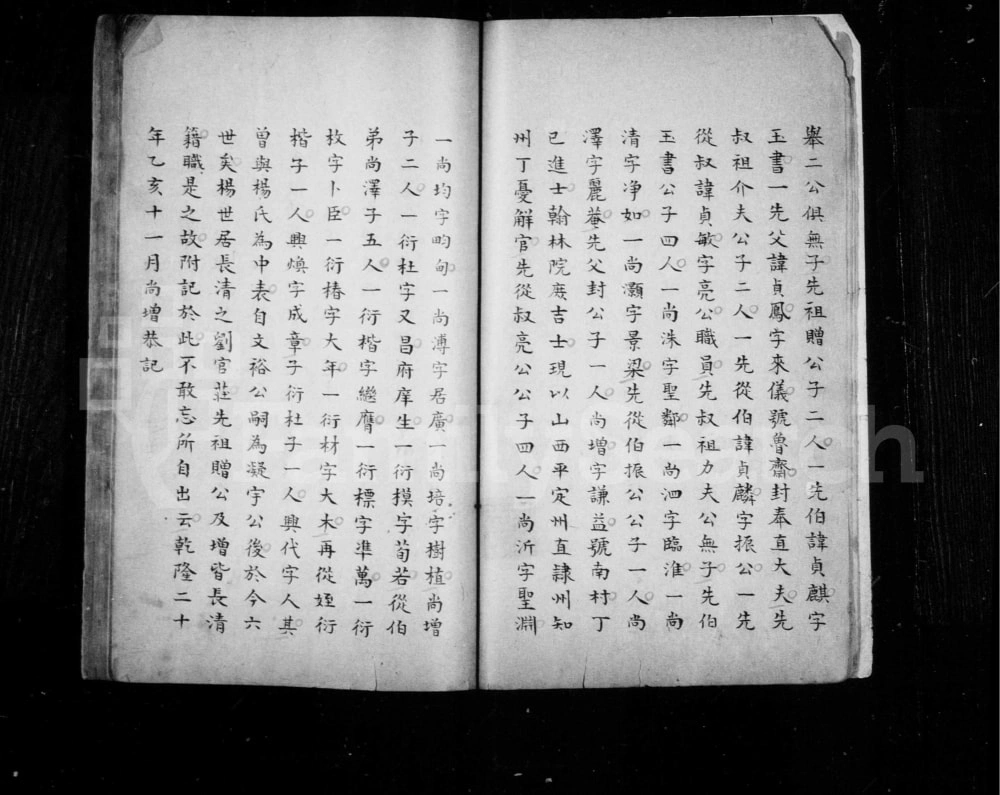 舉二公俱無子先祖贈公子二人一先伯諱貞麒字
玉書一先父諱貞鳳字來儀號魯齋封奉直大夫先
叔祖介夫公子二人一先從伯諱貞麟字振公一先
從叔諱貞敏字亮公職員先叔祖力夫公無子先伯
玉書公子四人一尚洙字聖鄰一尚泗字臨淮一尚
清字净如一尚灝字景梁先從伯振公公子一人尚
澤字麗菴先父封公子一人尚增字謙益號南村丁
已進士翰林院庶吉士現以山西平定州直隷州知
州丁憂解官先從叔亮公公子四人一尚沂字聖淵
一尚均字畇甸一尚溥字居廣一尚培字樹植尚增
子二人一衍杜字又昌府庠生一衍模字荀若從伯
弟尚澤子五人一衍楷字繼膺一衍標字準萬一衍
枚字卜臣一衍椿字大年一衍材字大木再從姪衍
楷子一人興煥字成章子衍杜子一人興代字人其
曾與楊氏為中表自文裕公嗣為凝宇公後於今六
世矣楊世居長清之劉官莊先祖贈公及增皆長清
籍職是之故附記於此不敢忘所自出云乾隆二十
年乙亥十一月尚增恭記